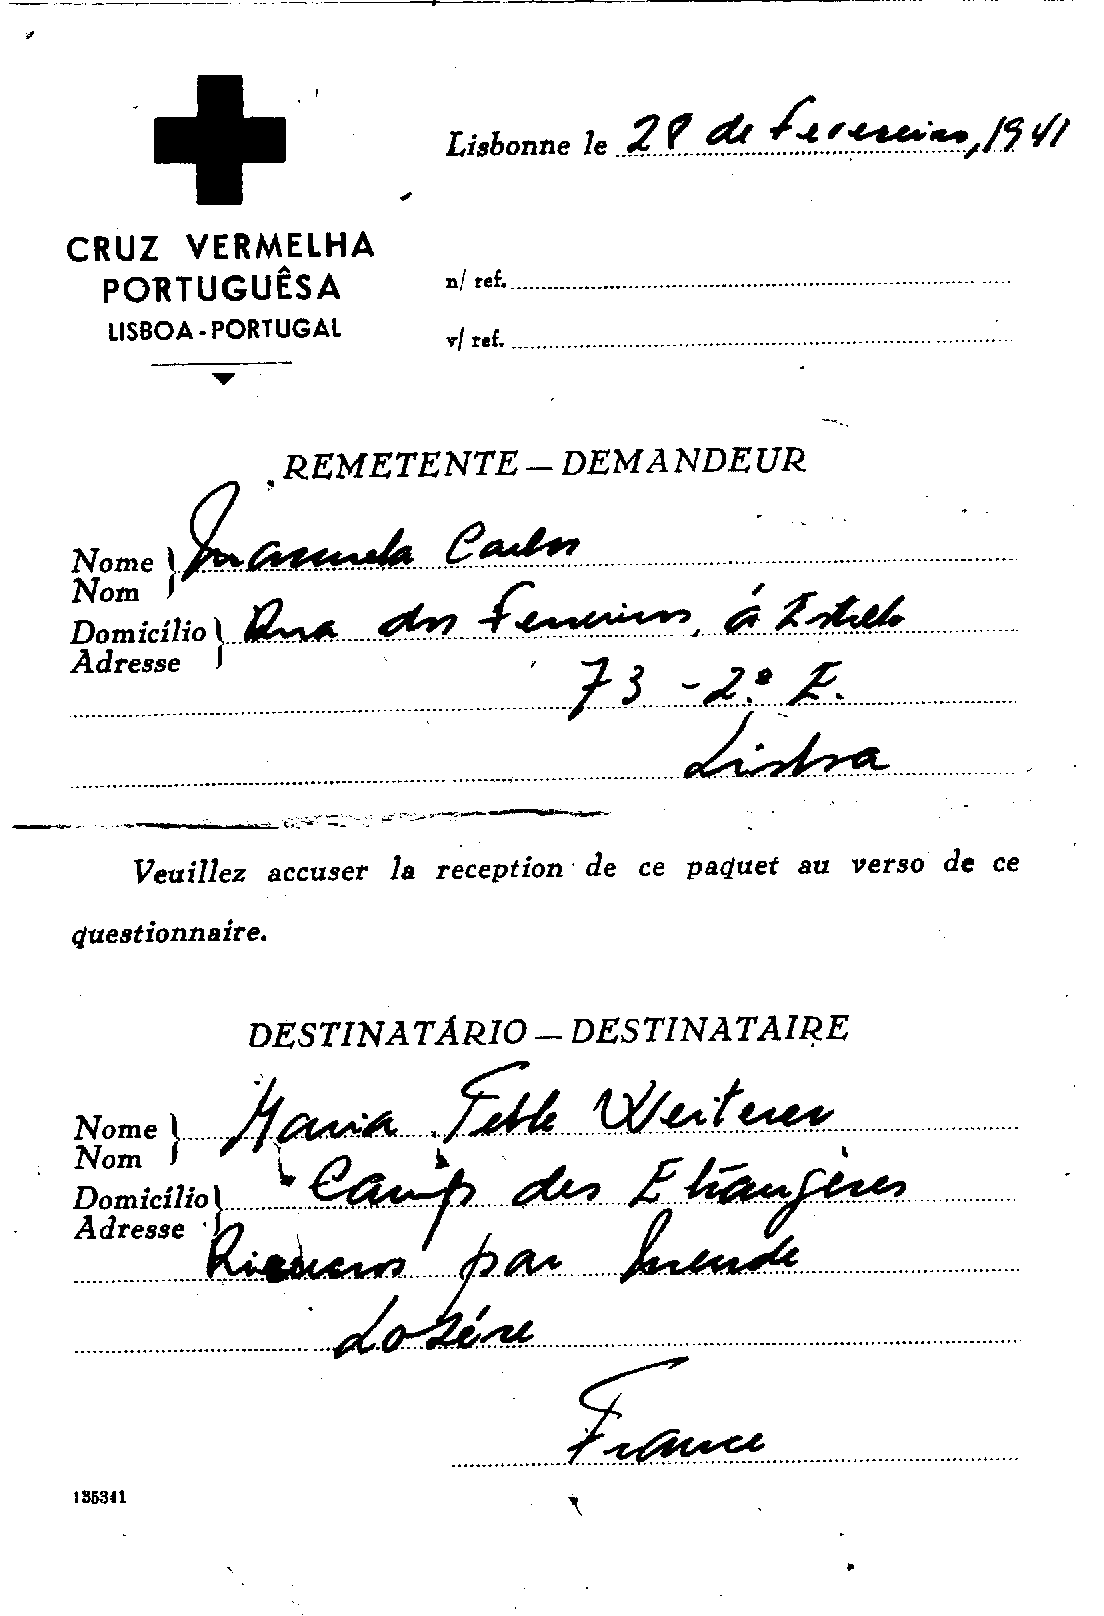 Lisbonne le 28 de Fevereiro, 1941
CRUZ VERMELHA
PORTUGUÊSA
LISBOA - PORTUGAL
n/ ref.
v/ ref.
REMETENTE — DEMANDEUR
Nome Manuela Carlos
Nom
Domicílio Rua dos Ferreiros, á Estrela
Adresse
73 - 2.º E.
Lisboa
Veuillez accuser la reception de ce paquet au verso de ce
questionnaire.
DESTINATÁRIO — DESTINATAIRE
Nome Maria
Nom
Domicílio Camp des Etrangères
Adresse
par Mende
Lozére
France
135341